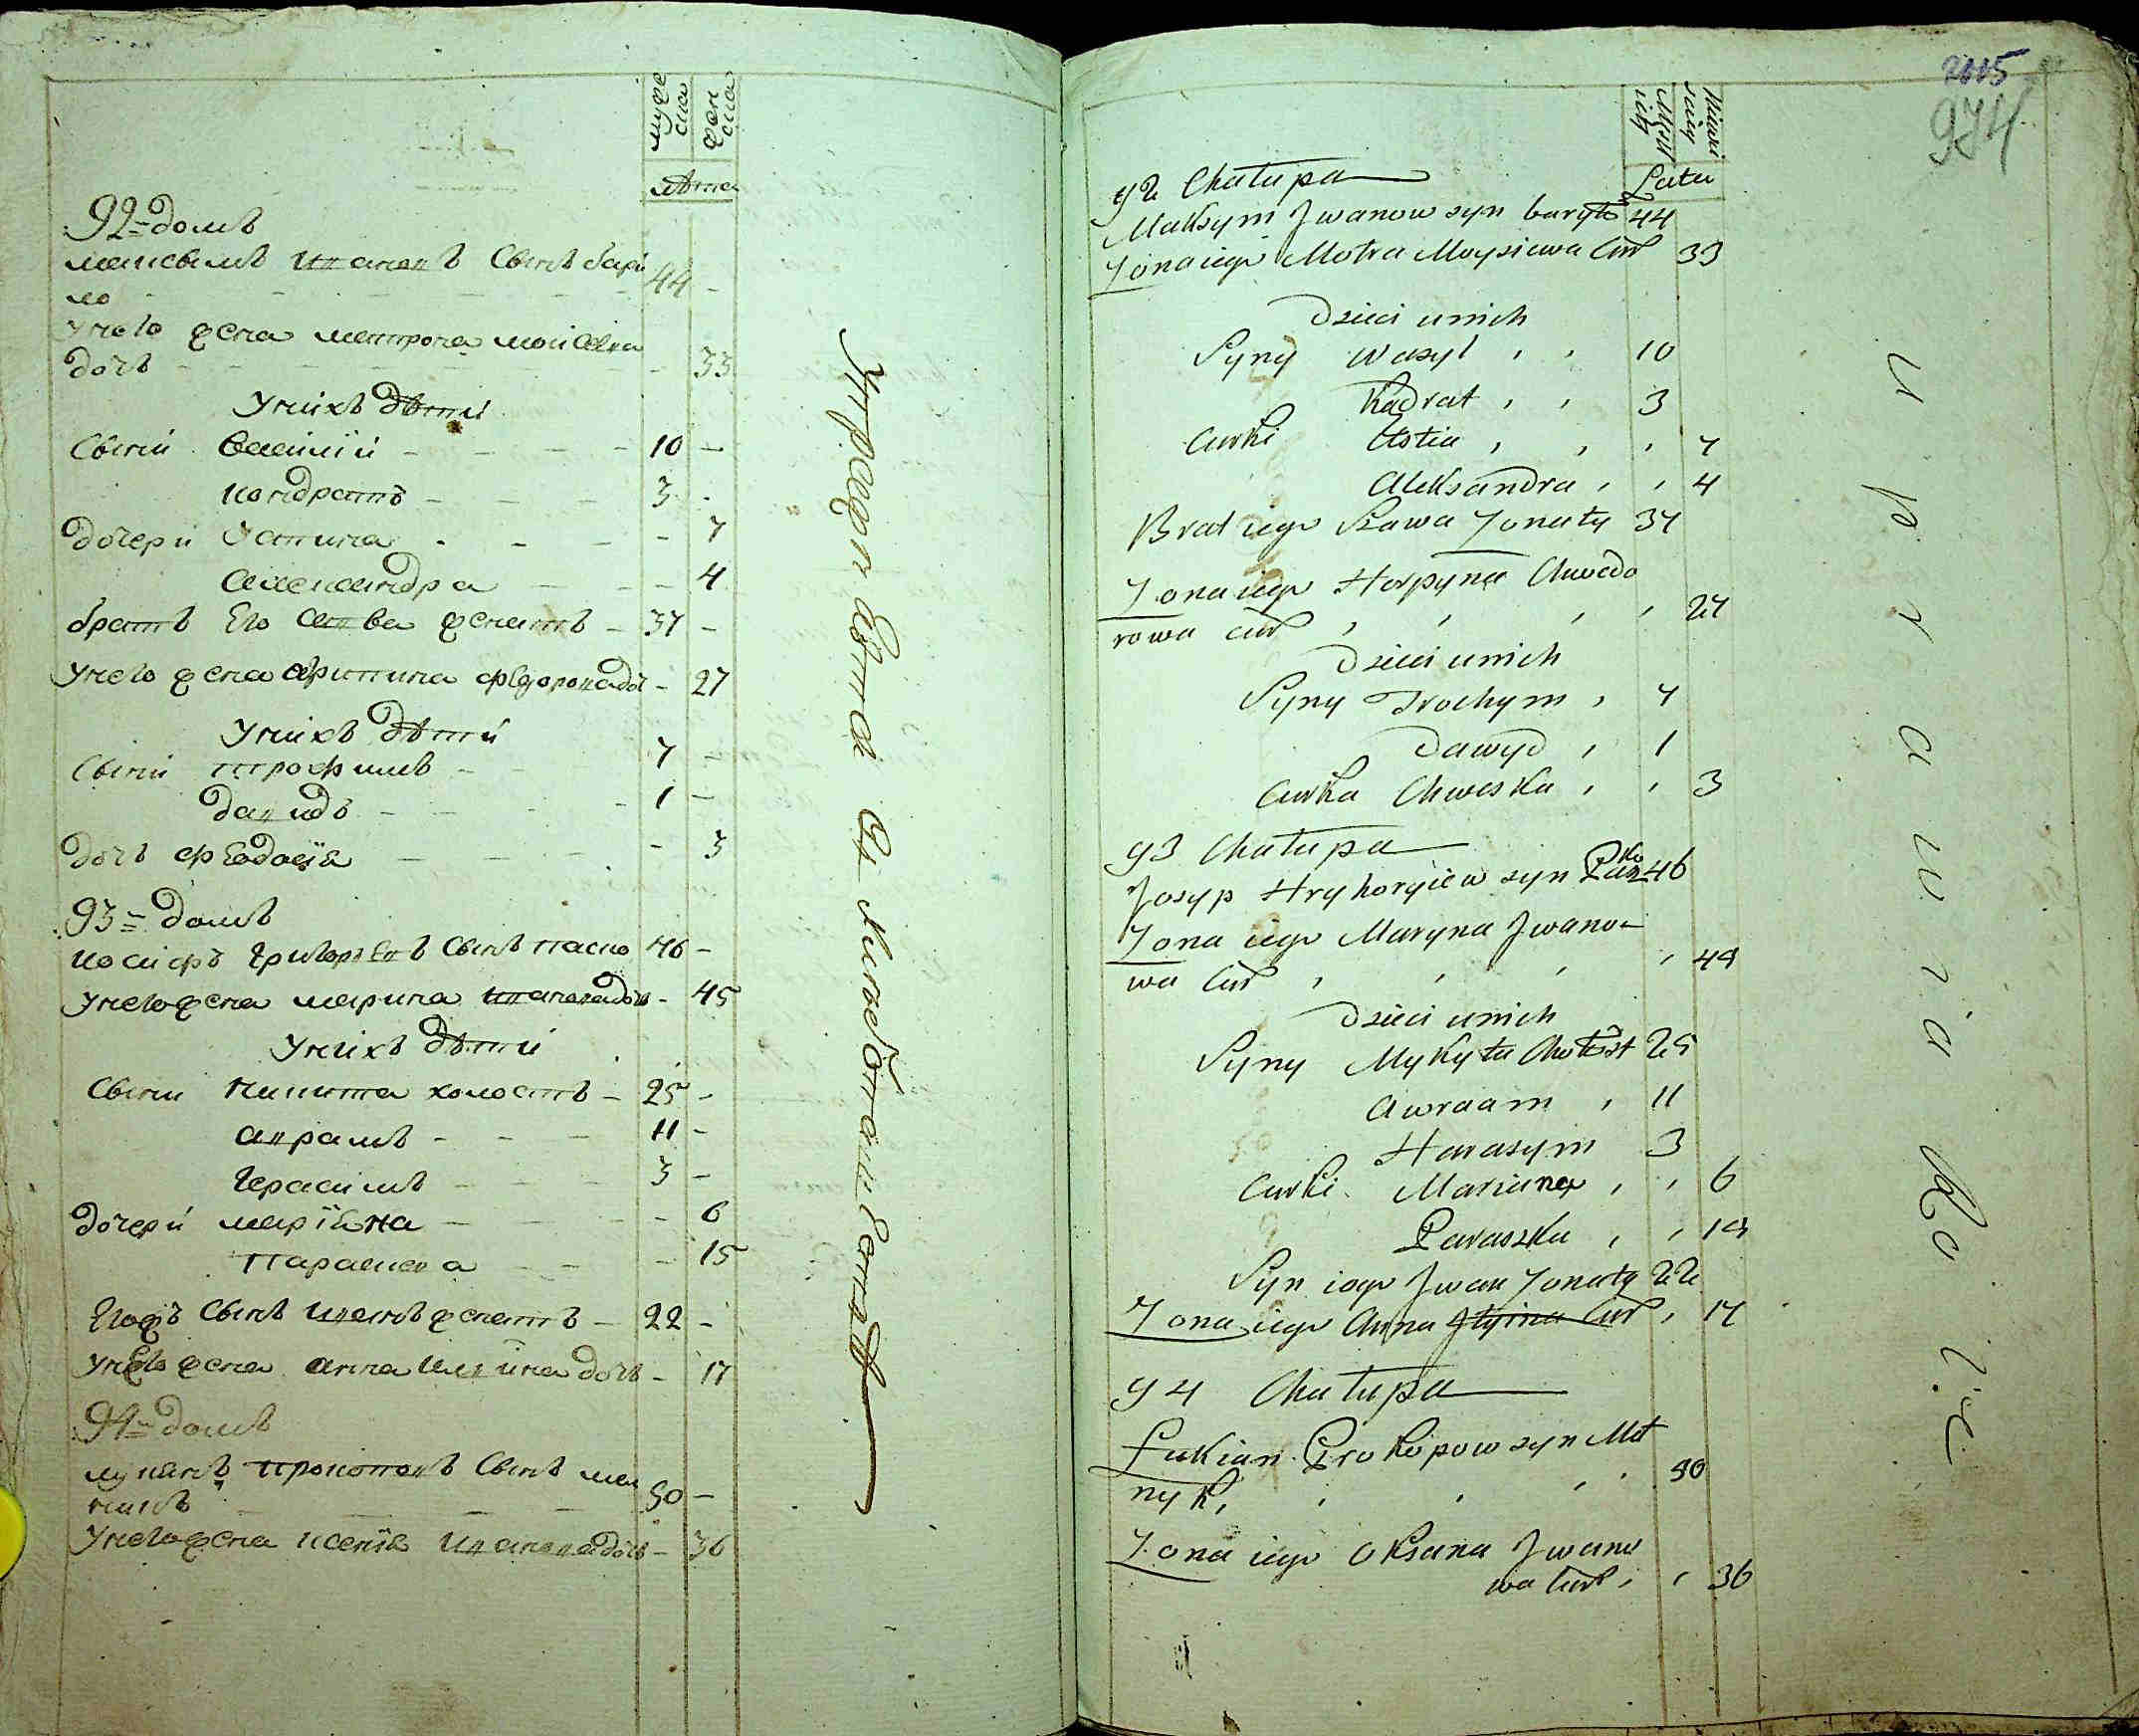 мужеска
женска
лѣта
92 домъ
максымъ ивановъ сынъ бари
ло 44 -
У него жена матрона моисеева
дочь - 33
У нихъ дѣти
Сыны Василий 10 -
кондратъ 3 -
дочери Устина - 7
Александра - 4
братъ Его Савва женатъ - 37 -
У него жена Агрипина федорова доч - 27
У нихъ дѣти
Сыны трофимъ 7 -
давидъ 1 -
дочь феодосия - 3
93 домъ
иосифъ григориевъ Сынъ паско 46 -
У него жена марина иванова дочь - 45
У нихъ дѣти
Сыны никита холостъ - 25 -
аврамъ 11 -
герасимъ 3 -
дочери мариана - 6
параскева - 15
Сынъ иванъ женатъ - 22 -
У него жена анна дочь - 17
94 домъ
лукианъ прокоповъ Сынъ мел
никъ 50 -
У него жена ксения иванова дочь - 36
2005
974
Męskiey
Żenskiey
Lata
92 Chałupa
Maksym Jwanow syn baryło 44
Żona iego Motra Moysiewa Cur 33
Dzieci u nich
Syny Wasyl 10
Kadrat 3
Curki Ustia 7
Aleksandra 4
Brat iego Sawa Żonaty 37
Żona iego Horpyna Chwedo
rowa cur 27
Dzieci u nich
Syny Trochym 7
Dawyd 1
Curka Chweska 3
93 Chałupa
Josyp Hryhoryiew syn Pasko 46
Żona iego Maryna Jwano=
wa Cur 45
Dzieci u nich
Syny Mykyta Chołost 25
Awraam 11
Harasym 3
Curki Mariana 6
Paraszka 15
Syn iego Jwan Żonaty 22
Żona iego Anna Jlyina Cur 17
94 Chałupa
Łukian Prokopow syn Mel
nyk 50
Żona iego Oksana Jwano
wa Cur 36